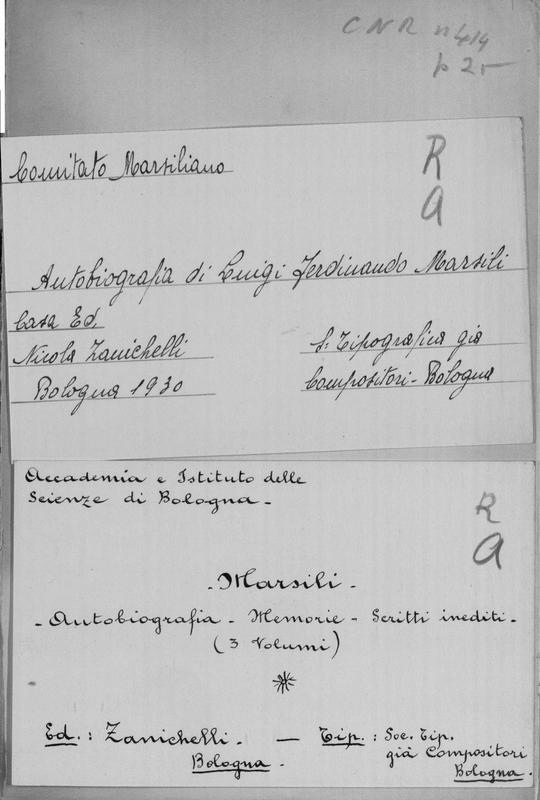 CNR n 414
p 25
Comitato Marsiliano
R
a
Autobiografia di Luigi Ferdinando Marsili
Casa Ed.
Nicola Zanichelli
Bologna 1930
S. Tipografica già
Compositori - Bologna
Accademia e Istituto delle
Scienze di Bologna -
R
a
- Marsili -
- Autobiografia - Memorie - Scritti inediti -
(3 Volumi)
Ed. : Zanichelli. — Tip. : Soc. Tip.
Bologna.
già Compositori
Bologna.